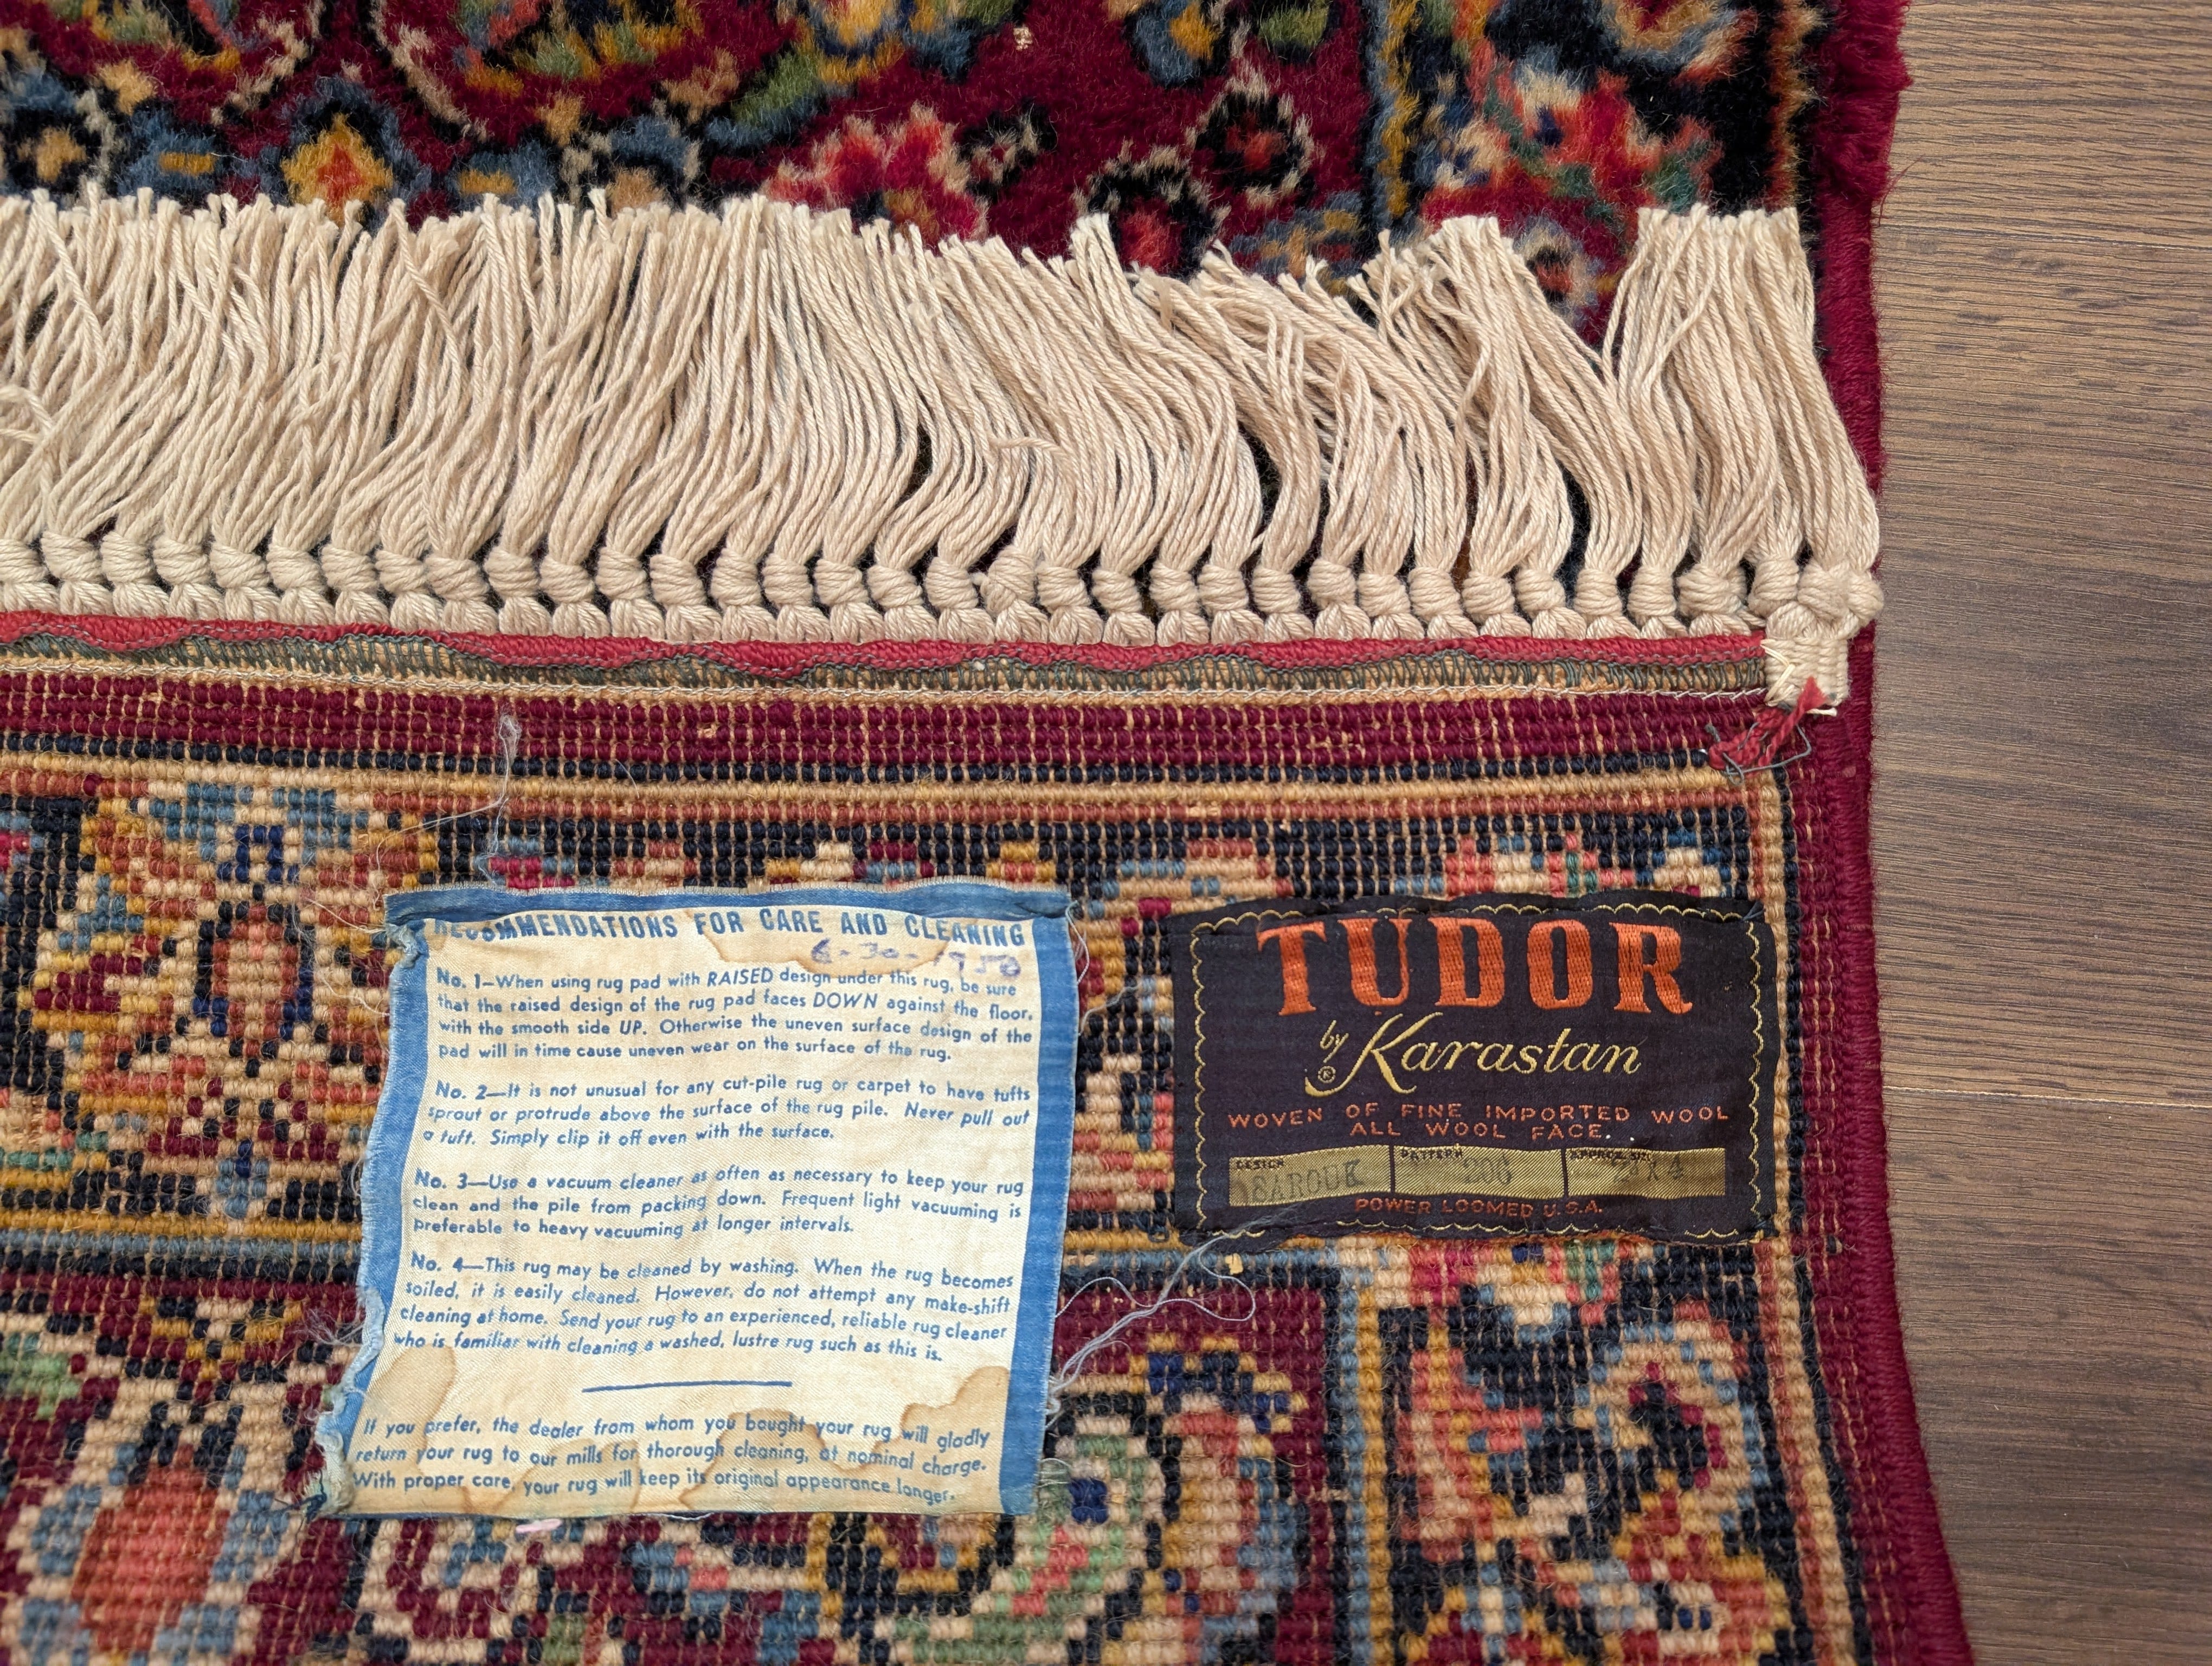 RECOMMENDATIONS FOR CARE AND CLEANING
6-30-1950
No. 1—When using rug pad with RAISED design under this rug, be sure
that the raised design of the rug pad faces DOWN against the floor,
with the smooth side UP. Otherwise the uneven surface design of the
pad will in time cause uneven wear on the surface of the rug.
No. 2—It is not unusual for any cut-pile rug or carpet to have tufts
sprout or protrude above the surface of the rug pile. Never pull out
a tuft. Simply clip it off even with the surface.
No. 3—Use a vacuum cleaner as often as necessary to keep your rug
clean and the pile from packing down. Frequent light vacuuming is
preferable to heavy vacuuming at longer intervals.
No. 4—This rug may be cleaned by washing. When the rug becomes
soiled, it is easily cleaned. However, do not attempt any make-shift
cleaning at home. Send your rug to an experienced, reliable rug cleaner
who is familiar with cleaning a washed, lustre rug such as this is.
If you prefer, the dealer from whom you bought your rug will gladly
return your rug to our mills for thorough cleaning, at nominal charge.
With proper care, your rug will keep its original appearance longer.
TUDOR
by Karastan
®
WOVEN OF FINE IMPORTED WOOL
ALL WOOL FACE.
DESIGN PATTERN APPROX. SIZE
SAROUK
POWER LOOMED U.S.A.